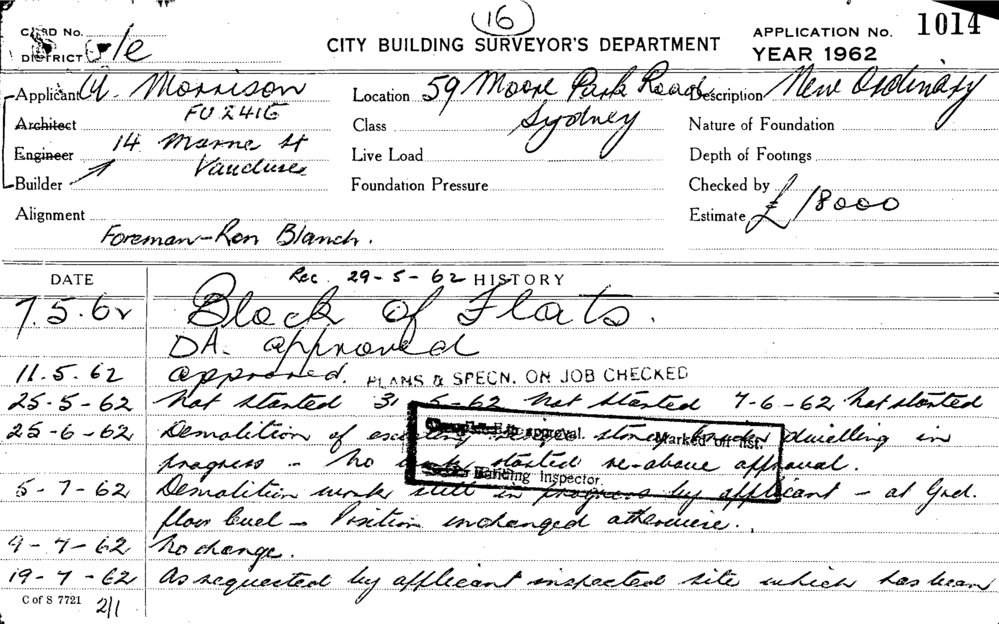 (16)
CARD No.
DISTRICT
CITY BUILDING SURVEYOR'S DEPARTMENT
APPLICATION No. 1014
YEAR 1962
Applicant Morrison
FU 2416
Architect
Engineer 14 Marne St
Vaucluse
Builder
Alignment
Foreman - Ron Blanch.
Location 59 Moore Park Road
Class Sydney
Live Load
Foundation Pressure
Description New Ordinary
Nature of Foundation
Depth of Footings
Checked by
Estimate £ 18000
DATE Rec. 29-5-62 HISTORY
7.5.62 Block of Flats.
DA. approved
11.5.62 approved. PLANS & SPECN. ON JOB CHECKED
25-5-62 Not started 31-5-62 Not started 7-6-62 Not started
25-6-62 Demolition of existing storey dwelling in
progress - No work started re-above approval.
5-7-62 Demolition work still in progress by applicant - at Grd.
floor level - Position unchanged otherwise.
9-7-62 No change.
19-7-62 As requested by applicant inspected site which has been
approval. Marked off list.
Building Inspector.
C of S 7721 2/1